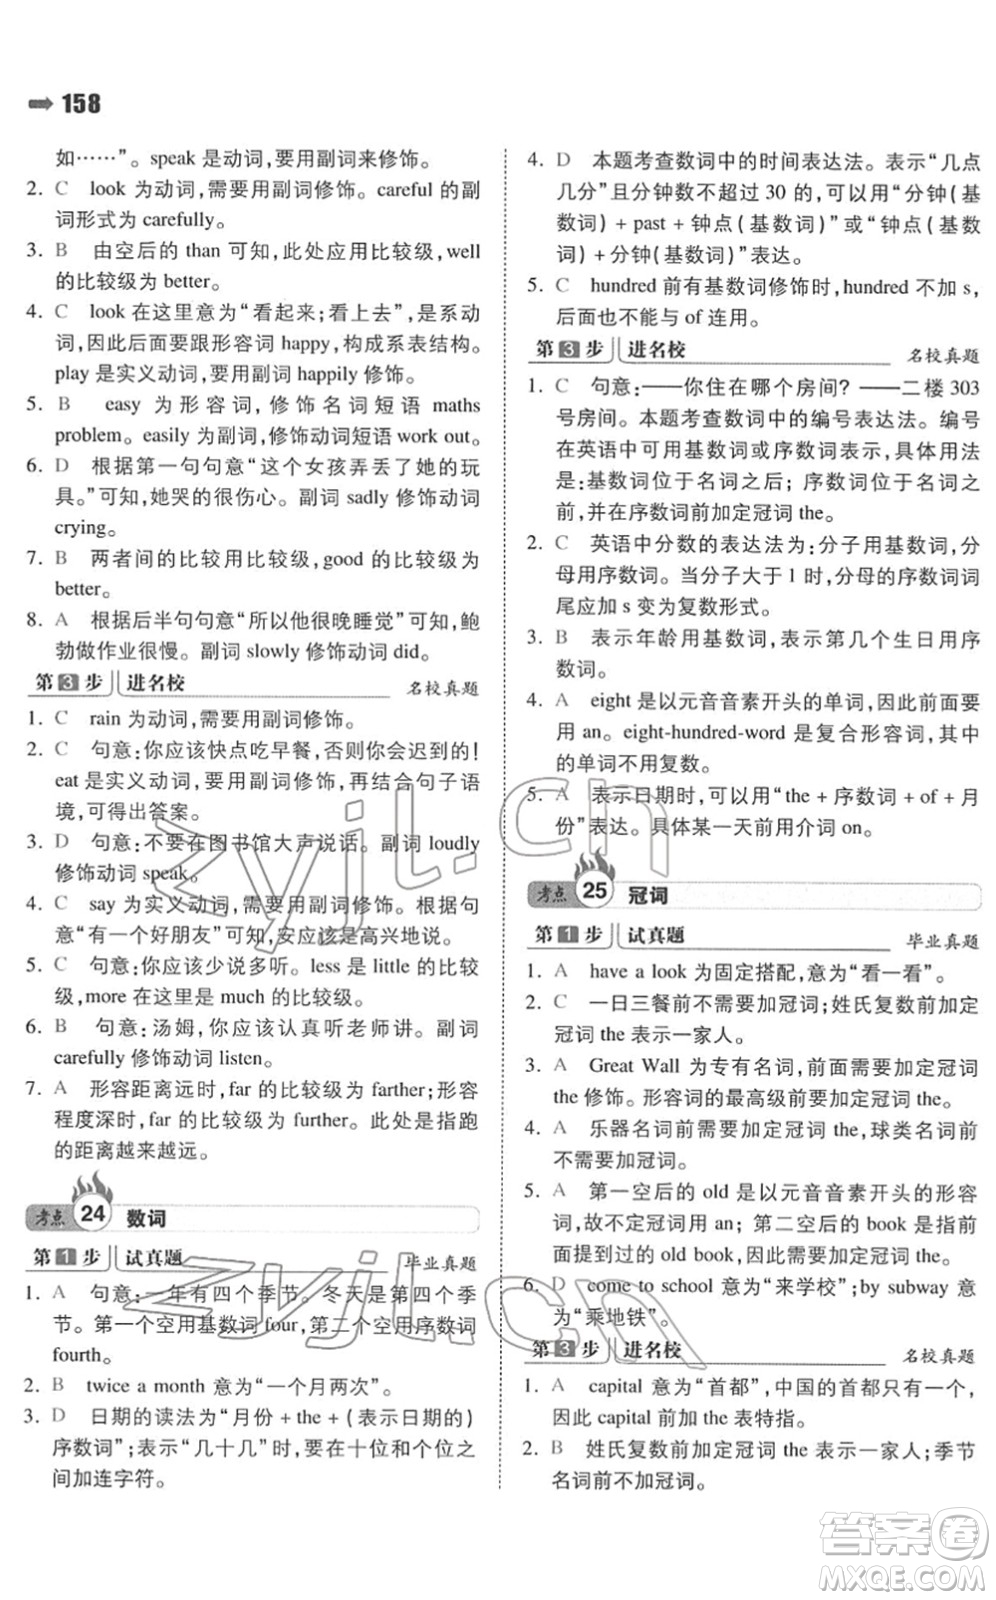 158
如……”。speak 是动词,要用副词来修饰。
2. C look 为动词,需要用副词修饰。careful 的副
词形式为 carefully。
3. B 由空后的 than 可知,此处应用比较级,well
的比较级为 better。
4. C look 在这里意为“看起来;看上去”,是系动
词,因此后面要跟形容词 happy,构成系表结构。
play 是实义动词,要用副词 happily 修饰。
5. B easy 为形容词,修饰名词短语 maths
problem。easily 为副词,修饰动词短语 work out。
6. D 根据第一句句意“这个女孩弄丢了她的玩
具。”可知,她哭的很伤心。副词 sadly 修饰动词
crying。
7. B 两者间的比较用比较级,good 的比较级为
better。
8. A 根据后半句句意“所以他很晚睡觉”可知,鲍
勃做作业很慢。副词 slowly 修饰动词 did。
第3步 进名校 名校真题
1. C rain 为动词,需要用副词修饰。
2. C 句意:你应该快点吃早餐,否则你会迟到的!
eat 是实义动词,要用副词修饰,再结合句子语
境,可得出答案。
3. D 句意:不要在图书馆大声说话。副词 loudly
修饰动词 speak。
4. C say 为实义动词,应用副词修饰。根据句
意“有一个好朋友”可知,安应该是高兴地说的。
5. C 句意:你应该少说多听。less 是 little 的比较
级,more 在这里是 much 的比较级。
6. B 句意:汤姆,你应该认真听老师讲。副词
carefully 修饰动词 listen。
7. A 形容距离远时,far 的比较级为 farther;形容
程度深时,far 的比较级为 further。此处是指跑
的距离越来越远。
考点 24 数词
第1步 试真题 毕业真题
1. A 句意:一年有四个季节。冬天是第四个季
节。第一个空用基数词 four,第二个空用序数词
fourth。
2. B twice a month 意为“一个月两次”。
3. D 日期的读法为“月份 + the + (表示日期的)
序数词”;表示“几十几”时,要在十位和个位之
间加连字符。
4. D 本题考查数词中的时间表达法。表示“几点
几分”且分钟数不超过 30 的,可以用“分钟(基
数词) + past + 钟点(基数词)”或“钟点(基数
词) + 分钟(基数词)”表达。
5. C hundred 前有基数词修饰时,hundred 不加 s,
后面也不能与 of 连用。
第3步 进名校 名校真题
1. C 句意:——你住在哪个房间? ——二楼 303
号房间。本题考查数词中的编号表达法。编号
在英语中可用基数词或序数词表示,具体用法
是:基数词位于名词之后; 序数词位于名词之
前,并在序数词前加定冠词 the。
2. C 英语中分数的表达法为:分子用基数词,分
母用序数词。当分子大于 1 时,分母的序数词词
尾应加 s 变为复数形式。
3. B 表示年龄用基数词,表示第几个生日用序
数词。
4. A eight 是以元音音素开头的单词,因此前面要
用 an。eight-hundred-word 是复合形容词,其中
的单词不用复数。
5. A 表示日期时,可以用“the + 序数词 + of + 月
份”表达。具体某一天前用介词 on。
考点 25 冠词
第1步 试真题 毕业真题
1. A have a look 为固定搭配,意为“看一看”。
2. C 一日三餐前不需要加冠词;姓氏复数前加定
冠词 the 表示一家人。
3. A Great Wall 为专有名词,前面需要加定冠词
the 修饰。形容词的最高级前要加定冠词 the。
4. A 乐器名词前需要加定冠词 the,球类名词前
不需要加冠词。
5. A 第一空后的 old 是以元音音素开头的形容
词,故不定冠词用 an; 第二空后的 book 是前
面提到过的 old book,因此需要加定冠词 the。
6. D come to school 意为“来学校”;by subway 意
为“乘地铁”。
第3步 进名校 名校真题
1. A capital 意为“首都”,中国的首都只有一个,
因此 capital 前加 the 表特指。
2. B 姓氏复数前加定冠词 the 表示一家人;季节
名词前不加冠词。
zyjl.cn
zyjl.cn
答案卷
MXQE.COM